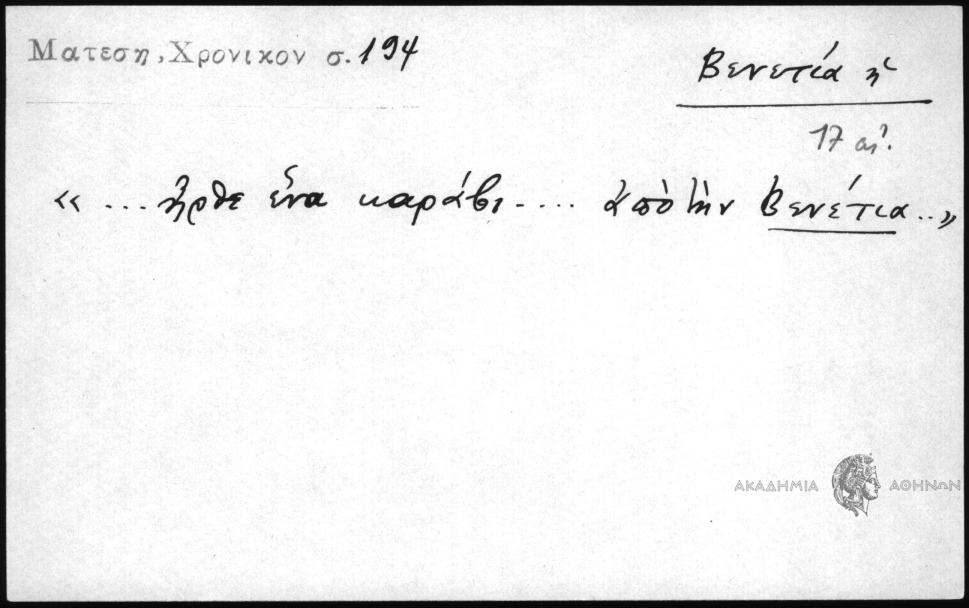 Ματεση, Χρονικον σ. 194
Βενετία ἡ
17 αἰ.
« ... ἦρθε ἕνα καράβι .... ἀπὸ τὴν Βενέτια .. »
ΑΚΑΔΗΜΙΑ ΑΘΗΝΩΝ